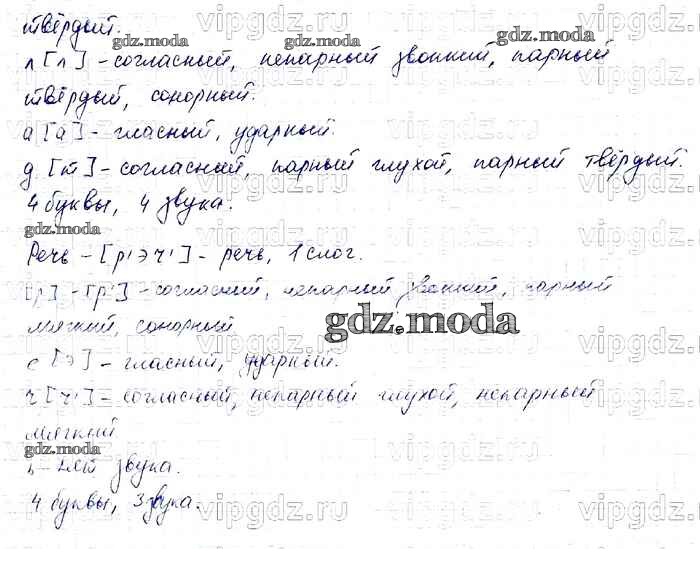 твёрдый.
л [л] - согласный, непарный звонкий, парный
твёрдый, сонорный.
а [а] - гласный, ударный.
д [т] - согласный, парный глухой, парный твёрдый.
4 буквы, 4 звука.
Речь - [р'эч'] - речь, 1 слог.
[р] - [р'] - согласный, непарный звонкий, парный
мягкий, сонорный
е [э] - гласный, ударный.
ч [ч'] - согласный, непарный глухой, непарный
мягкий
ь - нет звука.
4 буквы, 3 звука.
gdz.moda
vipgdz.ru